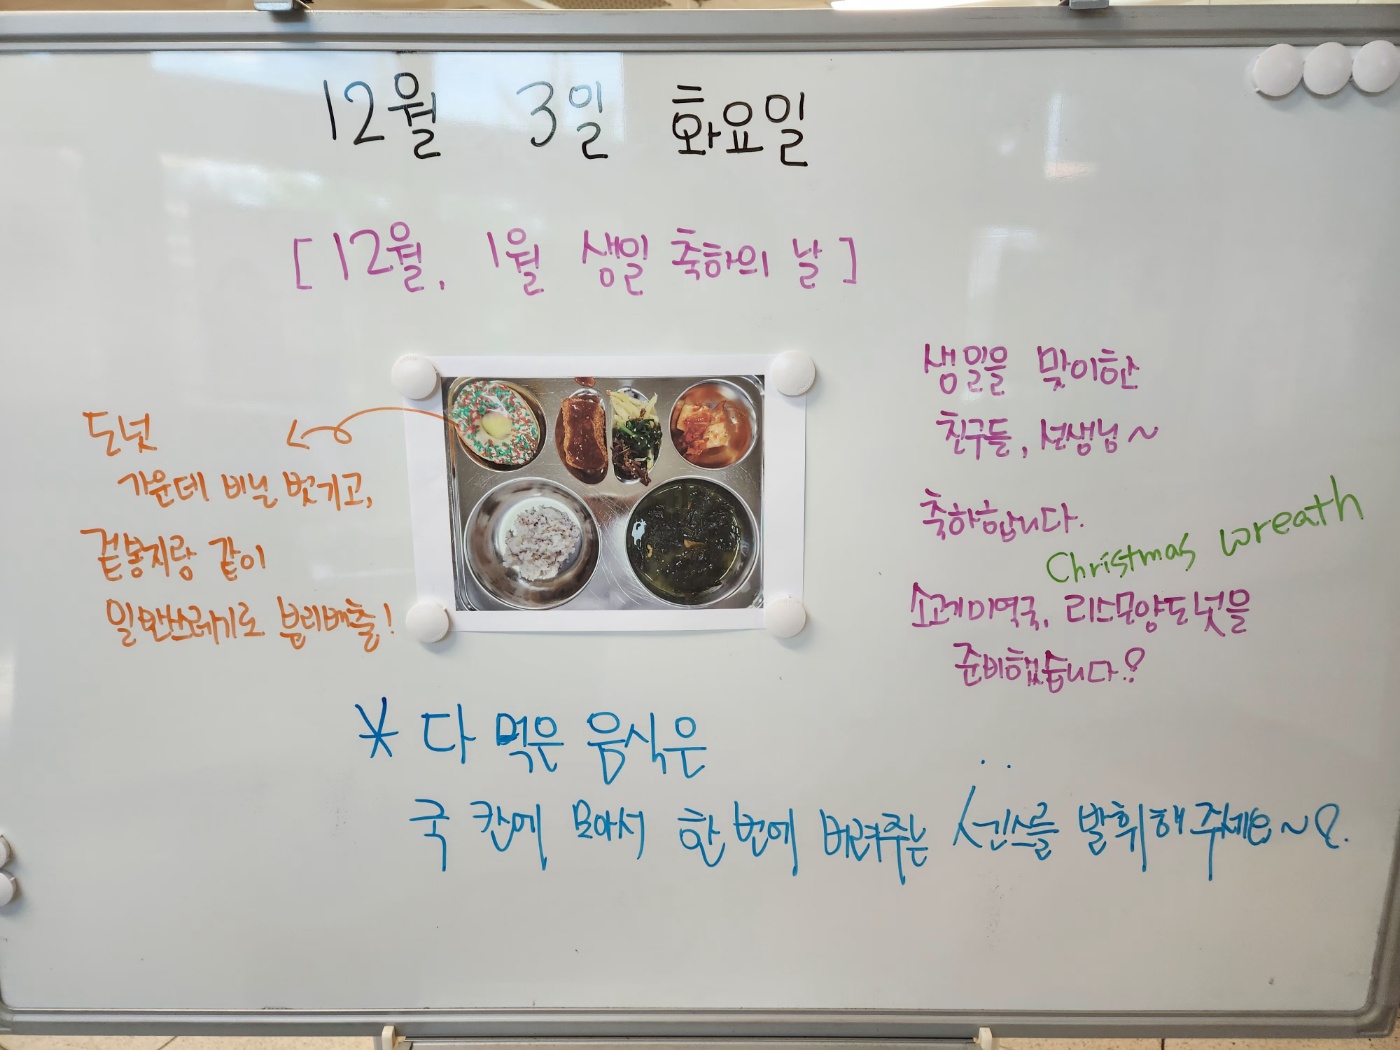 12월 3일 화요일
[12월, 1월 생일 축하의 날]
도넛
가운데 비닐 벗기고,
겉봉지랑 같이
일반쓰레기로 분리배출!
생일을 맞이한
친구들, 선생님~
축하합니다.
Christmas wreath
소고기미역국, 리스모양도넛을
준비했습니다?
* 다 먹은 음식은
국 칸에 모아서 한 번에 버려주는 센스를 발휘해주세요~?.